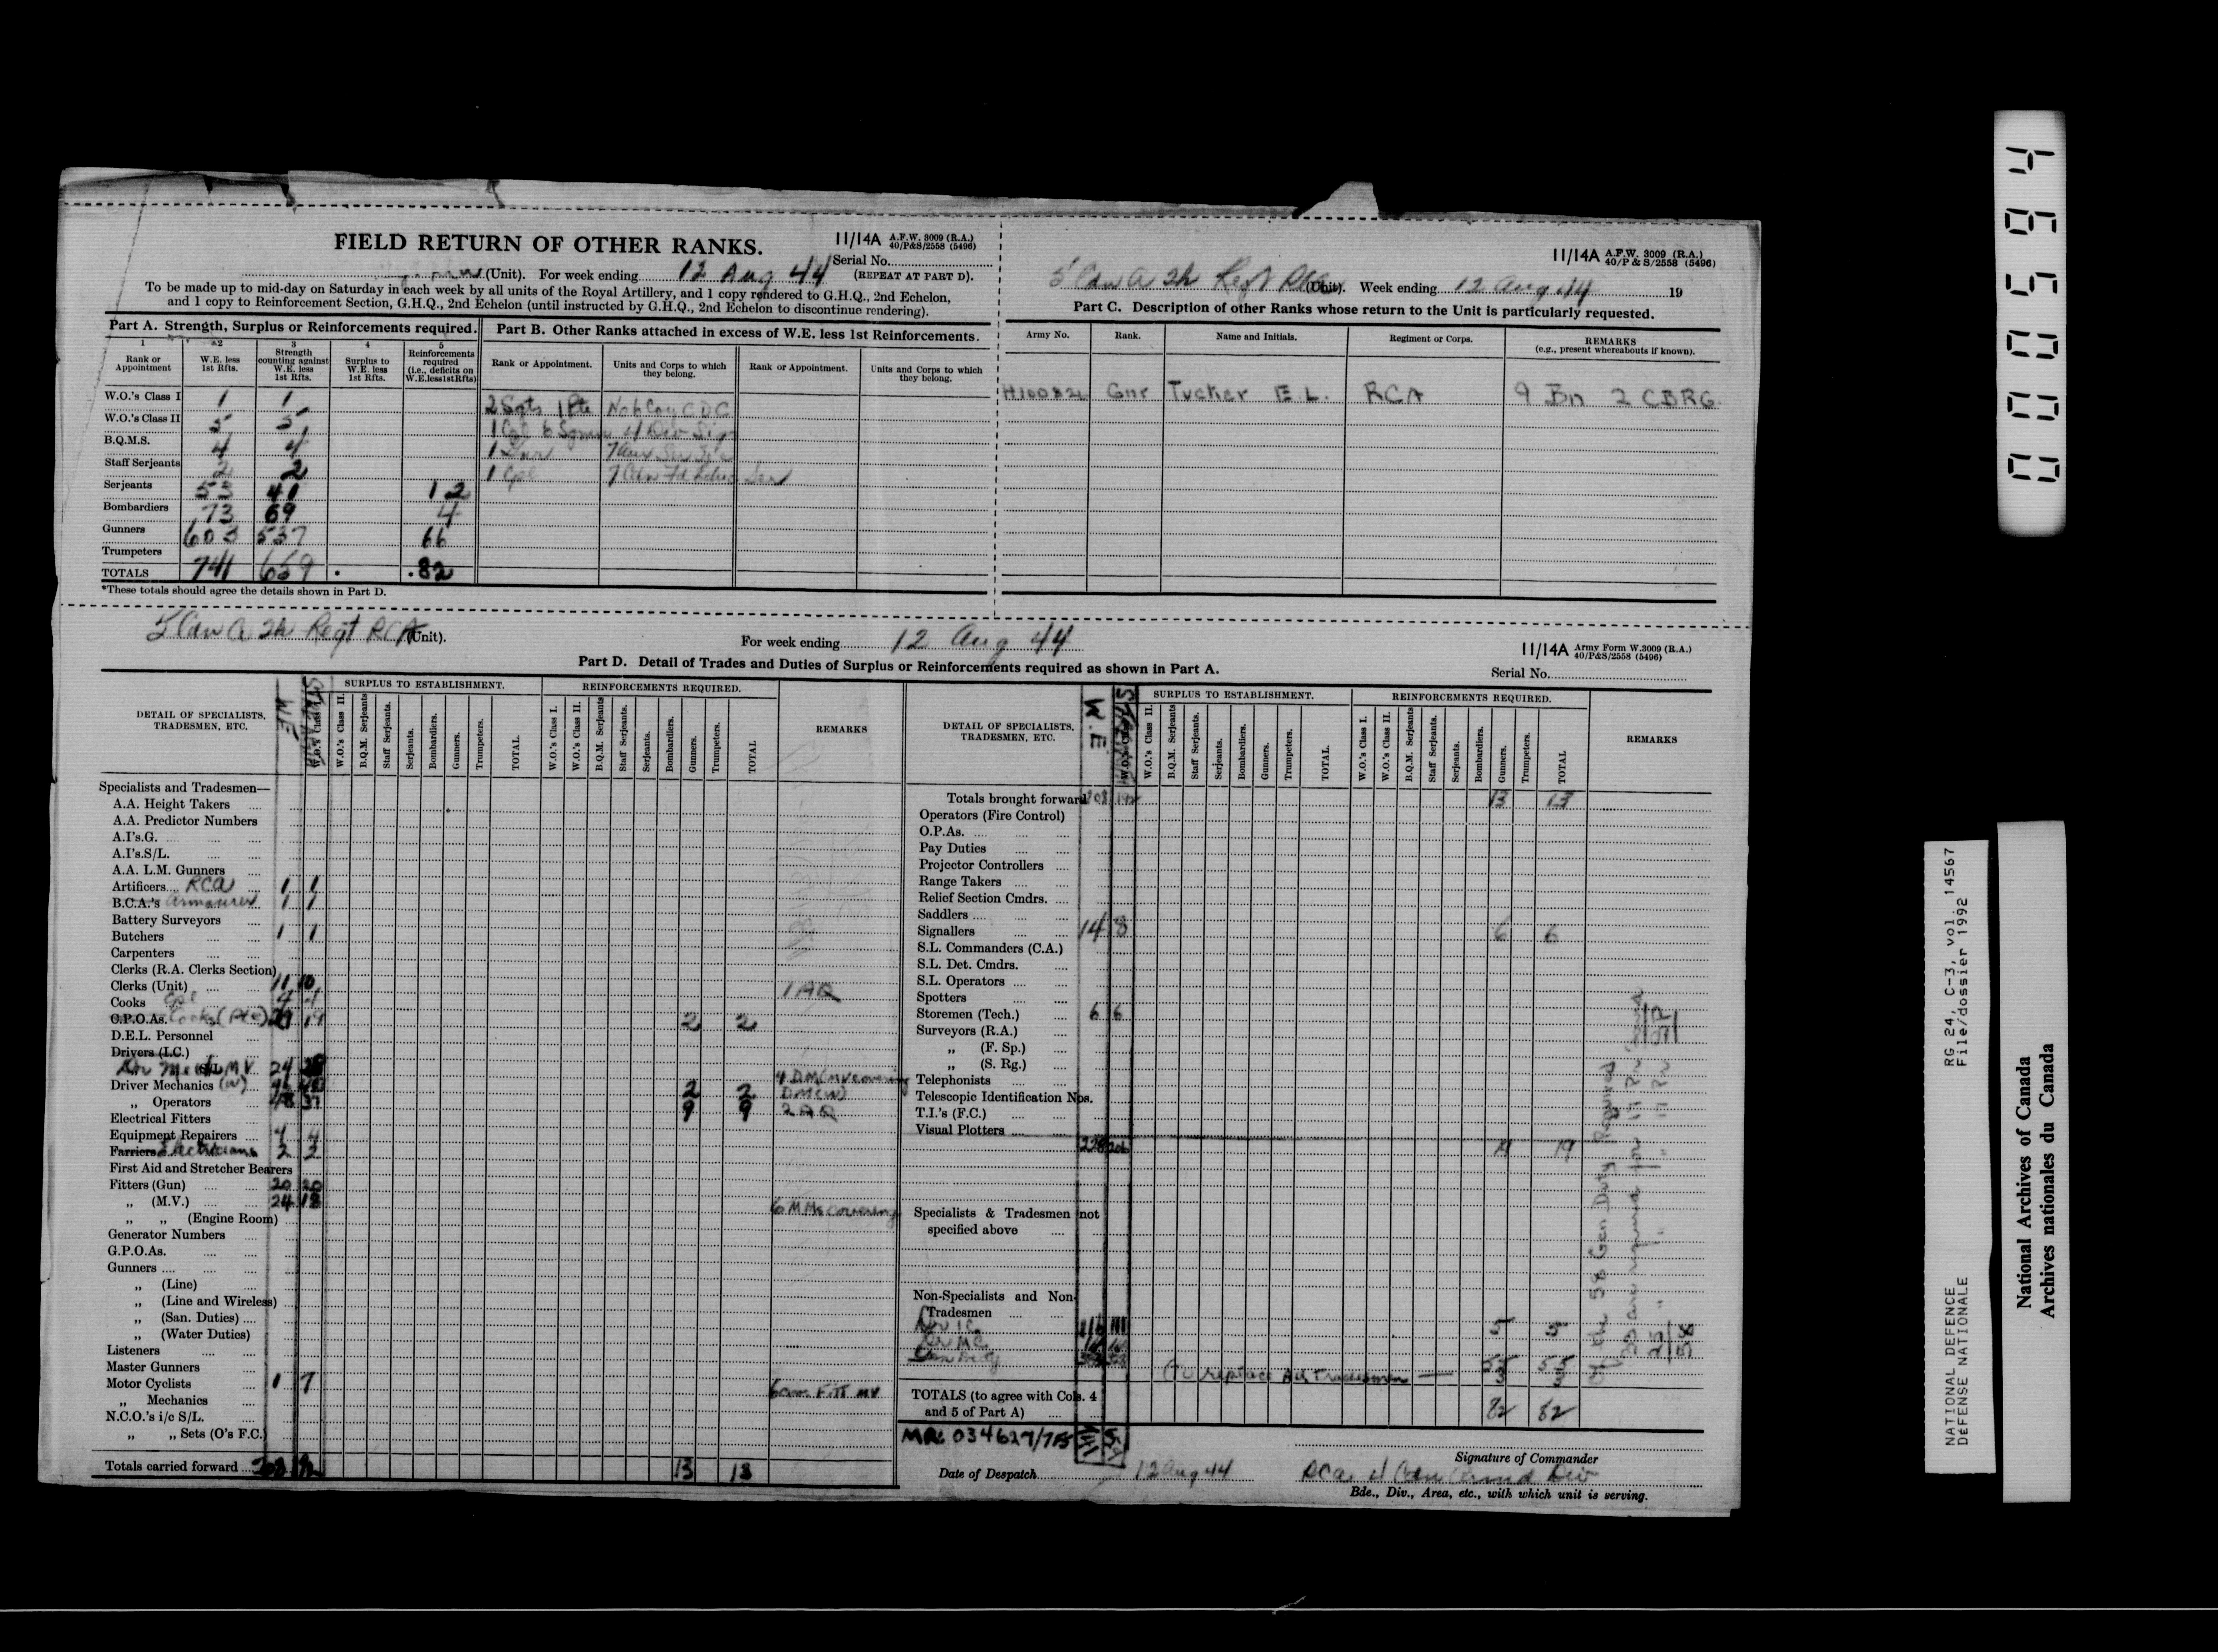 FIELD RETURN OF OTHER RANKS.
11/14A A.F.W. 3009 (R.A.)
40/P&S/2558 (5496)
Serial No.
(Unit). For week ending 12 Aug 44 (REPEAT AT PART D).
To be made up to mid-day on Saturday in each week by all units of the Royal Artillery, and 1 copy rendered to G.H.Q., 2nd Echelon,
and 1 copy to Reinforcement Section, G.H.Q., 2nd Echelon (until instructed by G.H.Q., 2nd Echelon to discontinue rendering).
Part A. Strength, Surplus or Reinforcements required.
1 2 3 4 5
Rank or Appointment
W.E. less 1st Rfts.
Strength counting against W.E. less 1st Rfts.
Surplus to W.E. less 1st Rfts.
Reinforcements required (i.e., deficits on W.E. less 1st Rfts)
W.O.'s Class I 1 1
W.O.'s Class II 5 5
B.Q.M.S. 4 4
Staff Serjeants 2 2
Serjeants 53 41 12
Bombardiers 73 69 4
Gunners 603 537 66
Trumpeters
TOTALS 741 659 82
*These totals should agree the details shown in Part D.
Part B. Other Ranks attached in excess of W.E. less 1st Reinforcements.
Rank or Appointment. Units and Corps to which they belong. Rank or Appointment. Units and Corps to which they belong.
2 Sgts 1 Pte CDC
1 Cpl 6 Sgmn 4 Div Sigs
1
1 Cpl 7 Cdn Fd
11/14A A.F.W. 3009 (R.A.)
40/P & S/2558 (5496)
5 Cdn A Tk Regt RCA (Unit). Week ending 12 Aug 44 19
Part C. Description of other Ranks whose return to the Unit is particularly requested.
Army No. Rank. Name and Initials. Regiment or Corps. REMARKS
(e.g., present whereabouts if known).
Gnr Tucker E.L. RCA 9 Bn 2 CBRG
5 Cdn A Tk Regt RCA (Unit).
For week ending 12 Aug 44
11/14A Army Form W.3009 (R.A.)
40/P&S/2558 (5496)
Part D. Detail of Trades and Duties of Surplus or Reinforcements required as shown in Part A.
Serial No.
DETAIL OF SPECIALISTS, TRADESMEN, ETC.
WE
SURPLUS TO ESTABLISHMENT.
W.O.'s Class I. W.O.'s Class II. B.Q.M. Serjeants Staff Serjeants. Serjeants. Bombardiers. Gunners. Trumpeters. TOTAL.
REINFORCEMENTS REQUIRED.
W.O.'s Class I. W.O.'s Class II. B.Q.M. Serjeants Staff Serjeants. Serjeants. Bombardiers. Gunners. Trumpeters. TOTAL
REMARKS
Specialists and Tradesmen—
A.A. Height Takers
A.A. Predictor Numbers
A.I's.G.
A.I's.S/L.
A.A. L.M. Gunners
Artificers RCA 1 1
B.C.A.'s Armourer 1 1
Battery Surveyors
Butchers 1 1
Carpenters
Clerks (R.A. Clerks Section)
Clerks (Unit) 11 10 1 AQ
Cooks Cpl 4 4
G.P.O.As. Cooks (Pte) 19 2 2
D.E.L. Personnel
Drivers (I.C.)
MV 24
Driver Mechanics (W) 2 2
„ Operators 48 37 9 9 2 AQ
Electrical Fitters
Equipment Repairers 4 4
Farriers Electricians 2 3
First Aid and Stretcher Bearers
Fitters (Gun) 20 20
„ (M.V.) 24 18 6 MMs covering
„ „ (Engine Room)
Generator Numbers
G.P.O.As.
Gunners
„ (Line)
„ (Line and Wireless)
„ (San. Duties)
„ (Water Duties)
Listeners
Master Gunners
Motor Cyclists 1 7 6 Fitt MV
„ Mechanics
N.C.O.'s i/c S/L.
„ „ Sets (O's F.C.)
Totals carried forward 13 13
DETAIL OF SPECIALISTS, TRADESMEN, ETC.
W.E
SURPLUS TO ESTABLISHMENT.
W.O.'s Class II. B.Q.M. Serjeants Staff Serjeants. Serjeants. Bombardiers. Gunners. Trumpeters. TOTAL.
REINFORCEMENTS REQUIRED.
W.O.'s Class I. W.O.'s Class II. B.Q.M. Serjeants Staff Serjeants. Serjeants. Bombardiers. Gunners. Trumpeters. TOTAL
REMARKS
Totals brought forward 13 13
Operators (Fire Control)
O.P.As.
Pay Duties
Projector Controllers
Range Takers
Relief Section Cmdrs.
Saddlers
Signallers 14 8 6 6
S.L. Commanders (C.A.)
S.L. Det. Cmdrs.
S.L. Operators
Spotters
Storemen (Tech.) 6 6
Surveyors (R.A.)
„ (F. Sp.)
„ (S. Rg.)
Telephonists
Telescopic Identification Nos.
T.I.'s (F.C.)
Visual Plotters
228 206 19 19
Specialists & Tradesmen not
specified above
Non-Specialists and Non-
Tradesmen
Dvr IC 116 111 5 5
Dvr MC
Gen Duty 55 55
To replace AQ Tradesmen — 3 3
TOTALS (to agree with Cols. 4
and 5 of Part A) 82 82
Of the 58 Gen Duty Required
MR 034627/715
Date of Despatch 12 Aug 44
Signature of Commander
RCA 4 Cdn Armd Div
Bde., Div., Area, etc., with which unit is serving.
000594
NATIONAL DEFENCE RG 24, C-3, vol 14567
DÉFENSE NATIONALE File/dossier 1992
National Archives of Canada
Archives nationales du Canada